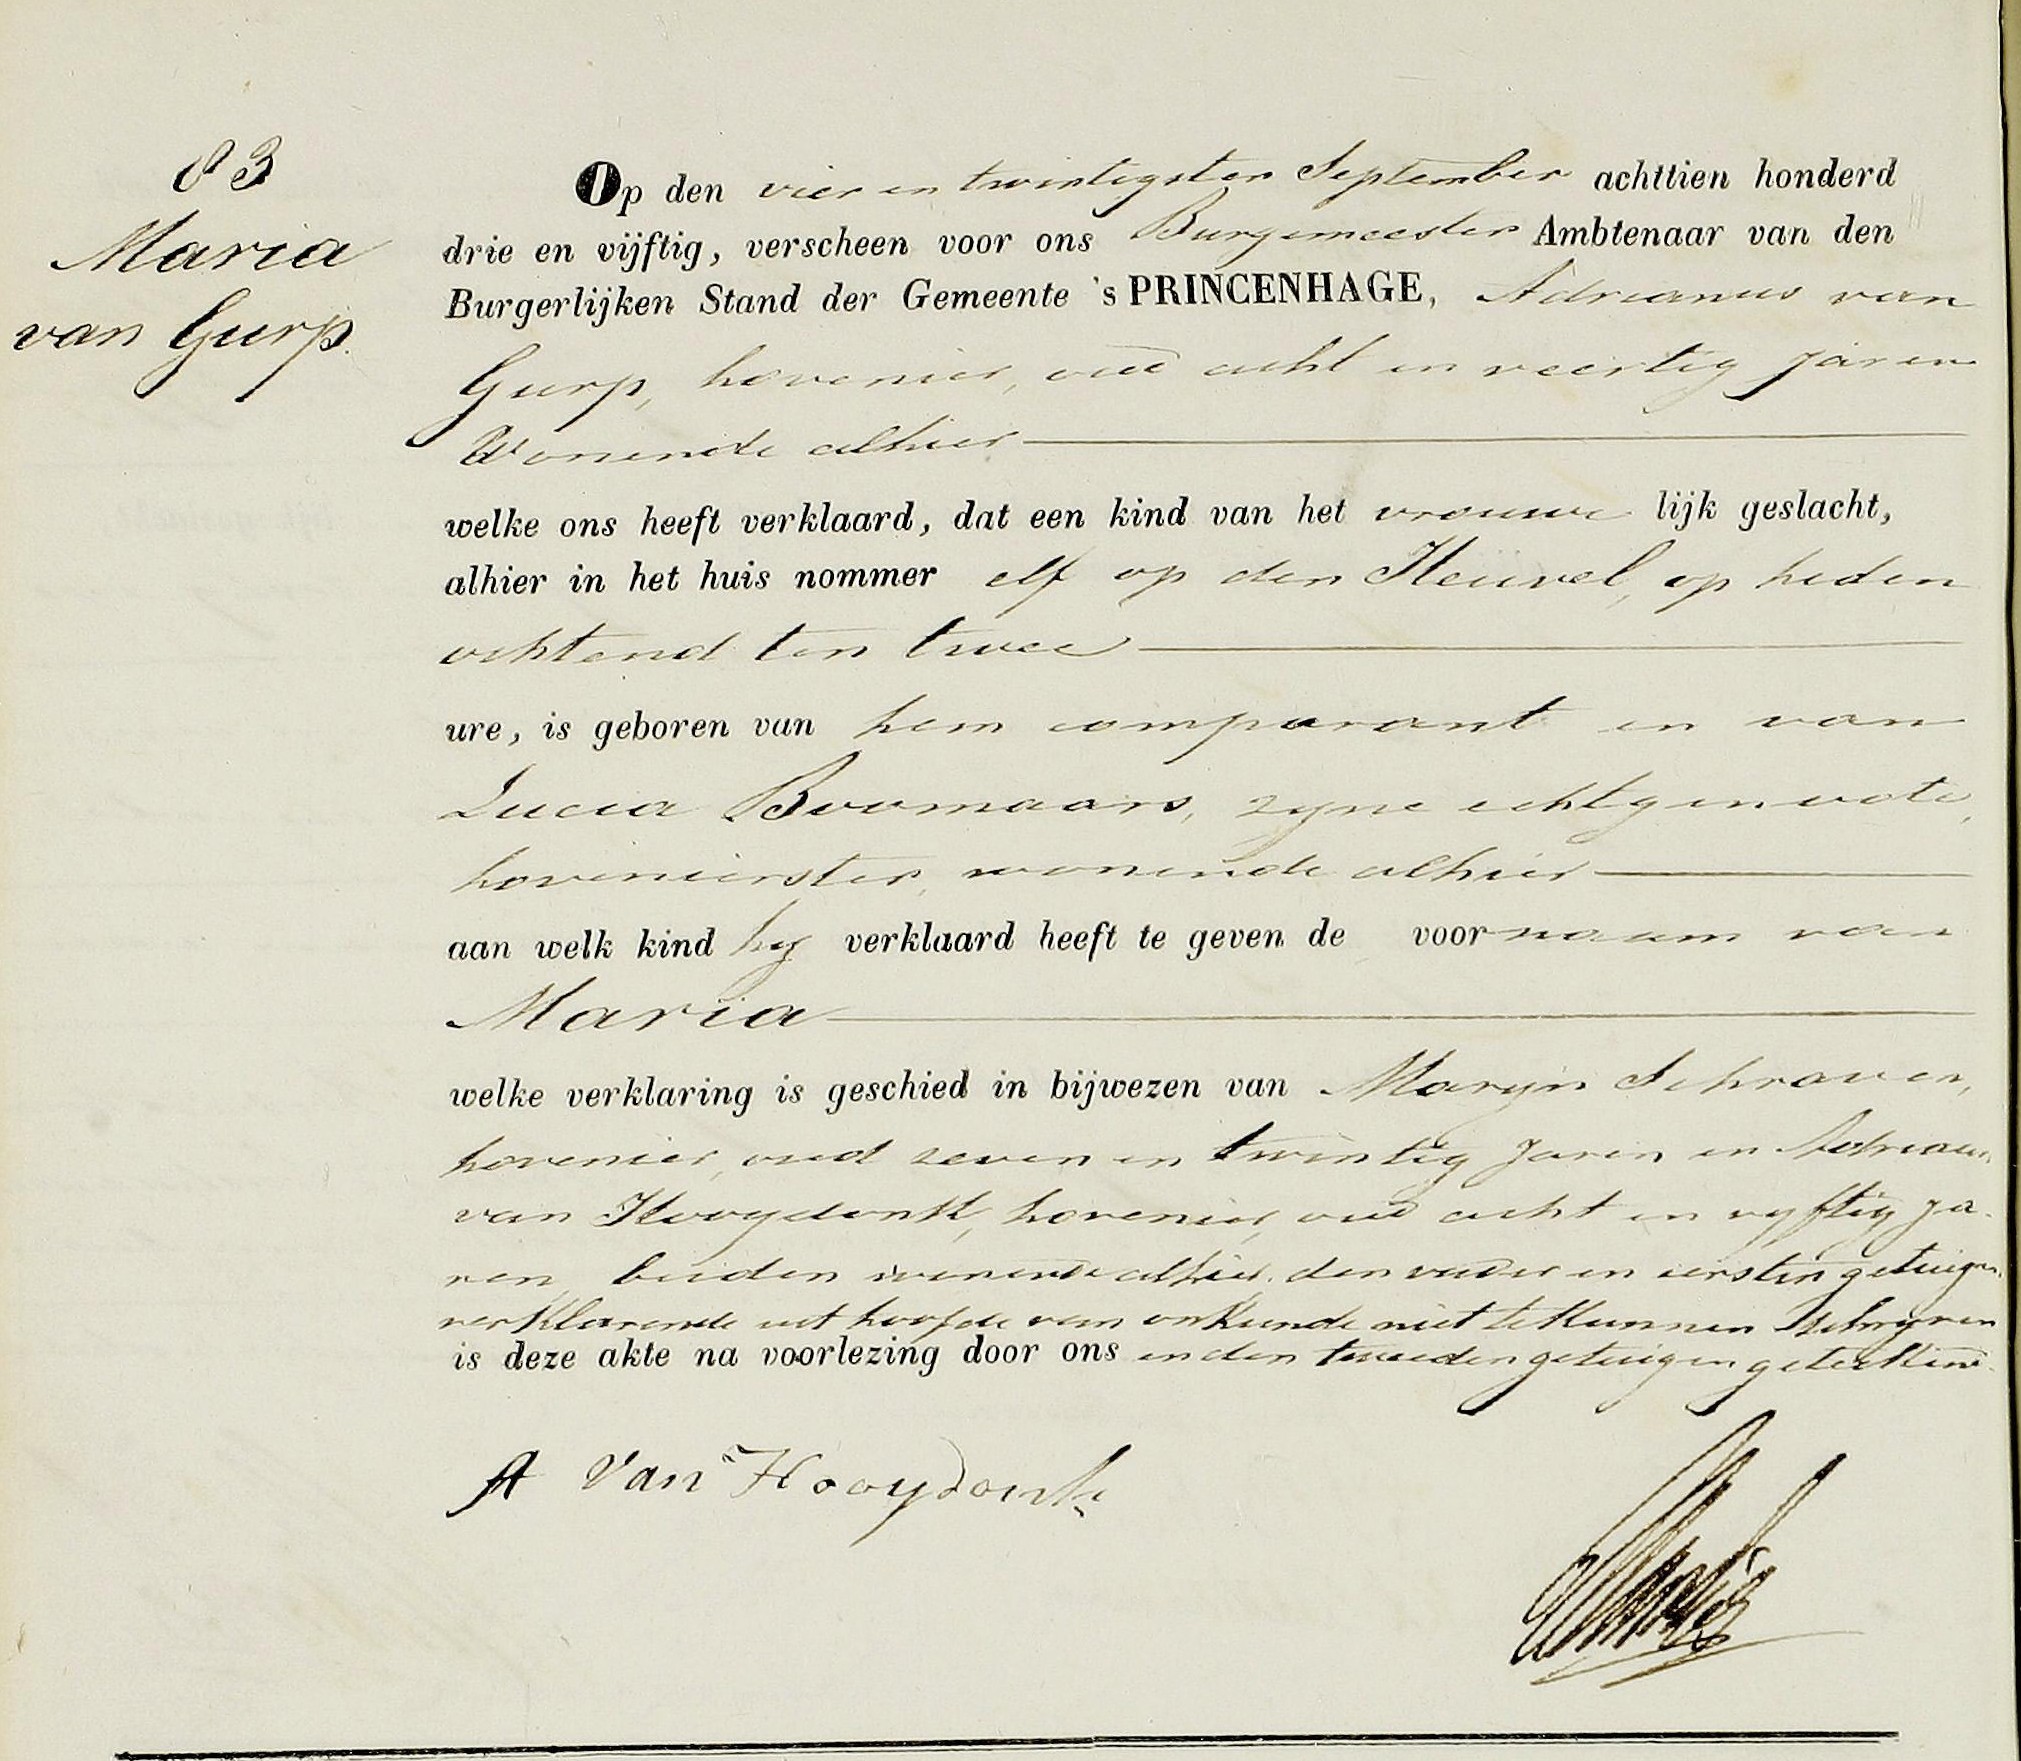 83
Maria
van Gurp.
Op den vier en twintigsten September achttien honderd
drie en vijftig, verscheen voor ons Burgemeester Ambtenaar van den
Burgerlijken Stand der Gemeente 's PRINCENHAGE, Adrianus van
Gurp, hovenier, oud acht en veertig jaren
Wonende alhier
welke ons heeft verklaard, dat een kind van het vrouwe lijk geslacht,
alhier in het huis nommer elf op den Heuvel, op heden
ochtend ten twee
ure, is geboren van hem comparant en van
Lucia Boomaars, zyne echtgenoote,
hovenierster, wonende alhier
aan welk kind hy verklaard heeft te geven de voornaam van
Maria
welke verklaring is geschied in bijwezen van Maryn Schraven,
hovenier, oud zeven en twintig jaren en Adriaan
van Hooydonk, hovenier, oud acht en vyftig ja-
ren, beiden wonende alhier. den vader en eersten getuigen
verklarende uit hoofde van onkunde niet te kunnen schryven
is deze akte na voorlezing door ons en den tweeden getuigen geteekend.
A Van Hooydonk